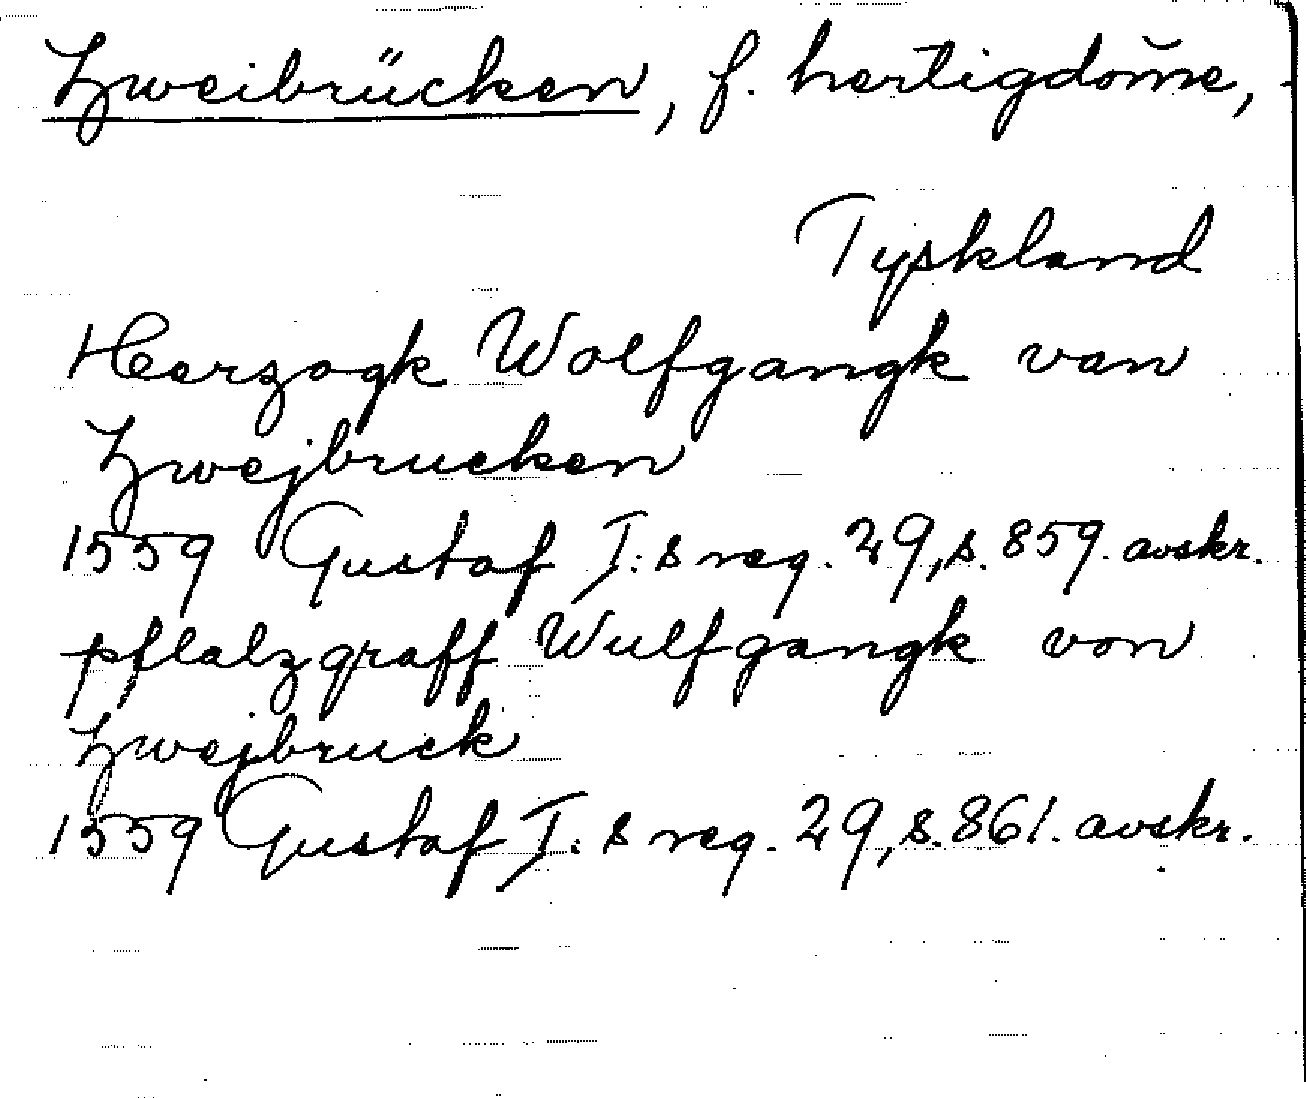 Zweibrücken, f. hertigdöme,
Tyskland
Herzogk Wolfgangk van
Zwejbrucken
1559 Gustaf I:s reg. 29, s. 859. avskr.
pflalzgraff Wulfgangk von
Zwejbruck
1559 Gustaf I:s reg. 29, s. 861. avskr.